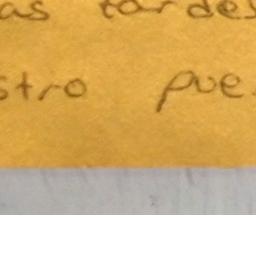 as tardes
stro pue